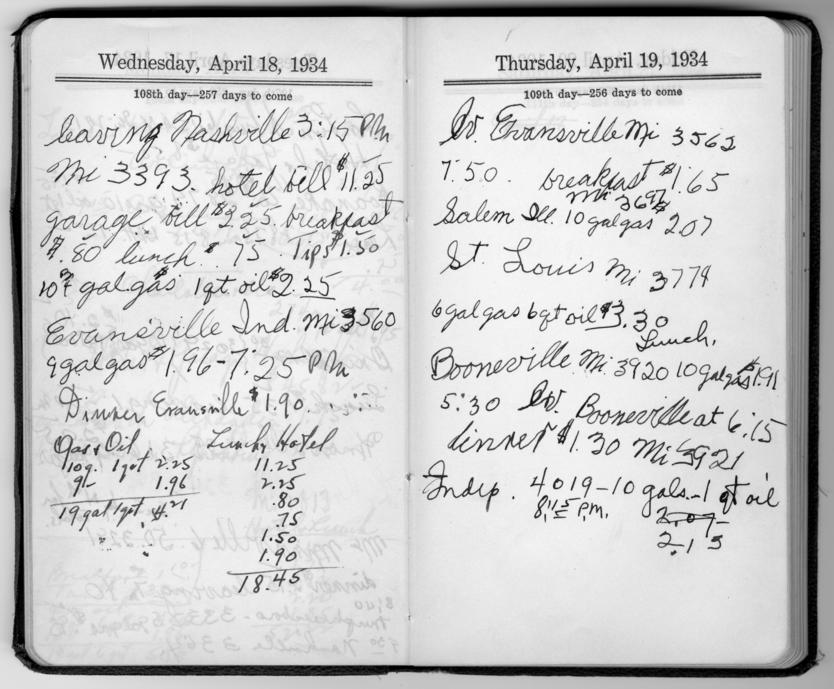 Wednesday, April 18, 1934
108th day—257 days to come
leaving Nashville 3:15 PM
Mi 3393. hotel bill $11.25
garage bill $2.25 breakfast
$.80 lunch $.75 Tips $1.50
gal gas 1qt oil $2.25
Evansville Ind. Mi 3560
9 gal gas $1.96-7:25 PM
Dinner Evansville $1.90
Gas & Oil Lunch, Hotel
10g. 1qt 2.25 11.25
9 — 1.96 2.25
19 gal 1qt 4.21 .80
.75
1.50
1.90
18.45
Thursday, April 19, 1934
109th day—256 days to come
Lv. Evansville Mi 3562
7:50. breakfast $1.65
Mi 3697
Salem Ill. 10 gal gas $2.07
St. Louis Mi 3774
6 gal gas 6 qt oil $3.30
Lunch,
Booneville Mi. 3920 10 gal gas $1.91
5:30 Lv. Booneville at 6:15
dinner $1.30 Mi 3921
Indep. 4019-10 gals.-1 qt oil
8:15 P.M. 2.07
2.13